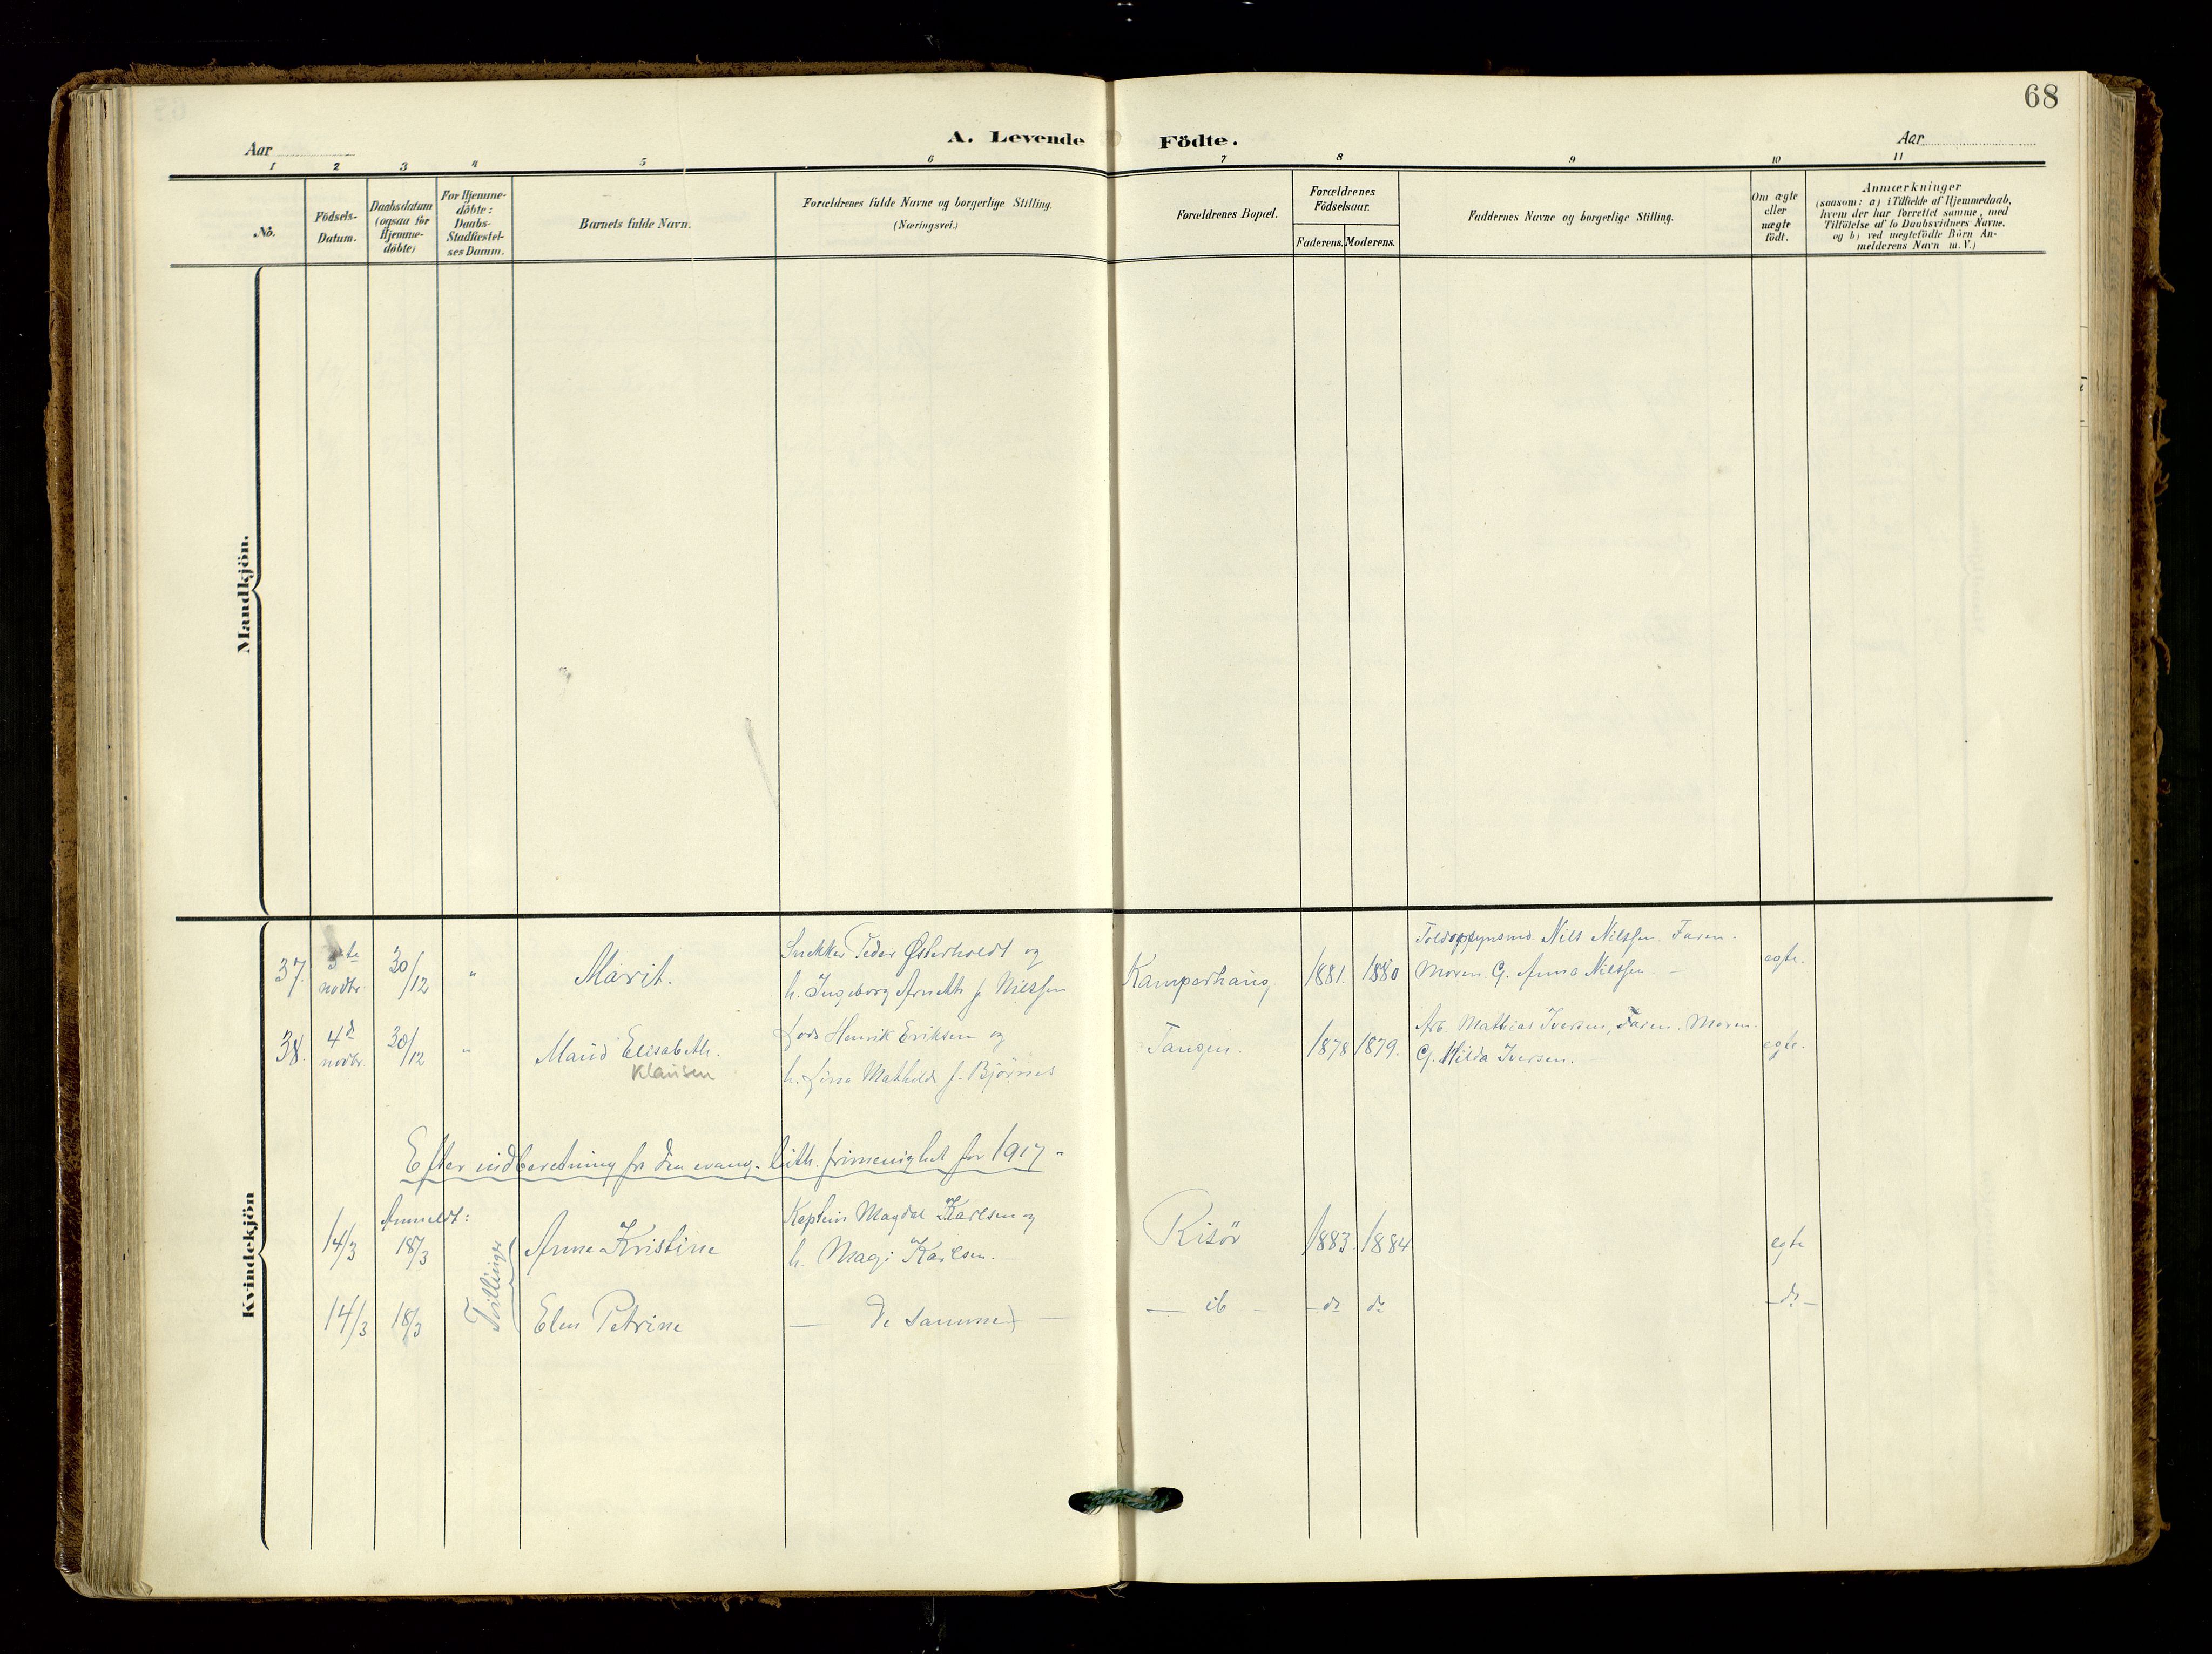 68
A. Levende Födte.
Aar
Aar
1 2 3 4 5 6 7 8 9 10 11
No.
Födsels-
Datum.
Daabsdatum
(ogsaa for
Hjemme-
döbte)
For Hjemme-
döbte:
Daabs-
Stadfæstel-
ses Datum.
Barnets fulde Navn.
Forældrenes fulde Navne og borgerlige Stilling.
(Næringsvei.)
Forældrenes Bopæl.
Forældrenes
Födselsaar.
Faderens. Moderens.
Faddernes Navne og borgerlige Stilling.
Om ægte
eller
uægte
födt.
Anmærkninger
(saasom: a) i Tilfælde af Hjemmedaab,
hvem der har forrettet samme, med
Tilföielse af to Daabsvidners Navne,
og b) ved uægtefödte Börn An-
melderens Navn m. V.)
Mandkjön.
Kvindekjön
37. novbr. 30/12 " Marit.
Snekker Peder Østerholdt og
h. Ingeborg f. Nilssen
Kamperhaug. 1881. 1880
Nils Nilssen. Faren.
Moren. G. Anna Nilssen. —
egte.
38. 4d novbr. 30/12 " Maud Elisabeth.
Klausen
Lods Henrik Eriksen og
h. Lina Mathilde f. Bjørnes
Tangen. 1878 1879.
Arb. Mathias Iversen, Faren. Moren.
G. Hilda Iversen.
egte.
Efter indberetning fra den evang. luth. frimenighet for 1917
Anmeldt:
14/3 18/3 Anne Kristine
Kaptein Magdal Karlsen og
h. Magi Karlsen.
Risör 1883. 1884 egte
Tvillinger
14/3 18/3 Elen Petrine
— De samme —
— ib — — do do — do —